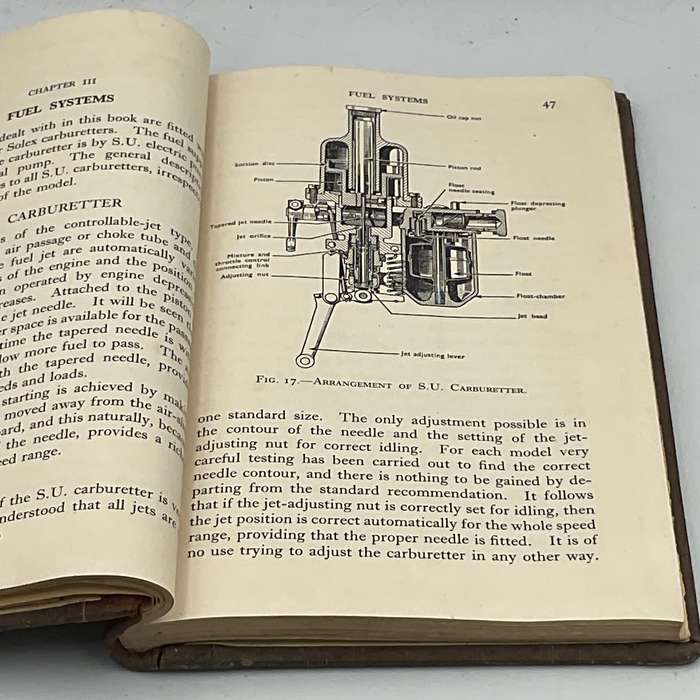 CHAPTER III
FUEL SYSTEMS
dealt with in this book are fitted
Solex carburetters. The fuel
carburetter is by S.U. electric
pump. The general
to all S.U. carburetters,
of the model.
CARBURETTER
of the controllable-jet type,
air passage or choke tube and
fuel jet are automatically
of the engine and the position
operated by engine
Attached to the piston
jet needle. It will be seen
space is available for the
time the tapered needle is
more fuel to pass. The
the tapered needle,
and loads.
starting is achieved by
moved away from the
and this naturally,
the needle, provides a
range.
of the S.U. carburetter is
that all jets are
FUEL SYSTEMS
47
Oil cap nut
Suction disc
Piston
Piston rod
Float
needle seating
Float depressing
plunger
Tapered jet needle
Jet orifice
Float needle
Mixture and
throttle control
connecting link
Adjusting nut
Float
Float-chamber
Jet head
Jet adjusting lever
FIG. 17.—ARRANGEMENT OF S.U. CARBURETTER.
one standard size. The only adjustment possible is in
the contour of the needle and the setting of the jet-
adjusting nut for correct idling. For each model very
careful testing has been carried out to find the correct
needle contour, and there is nothing to be gained by de-
parting from the standard recommendation. It follows
that if the jet-adjusting nut is correctly set for idling, then
the jet position is correct automatically for the whole speed
range, providing that the proper needle is fitted. It is of
no use trying to adjust the carburetter in any other way.